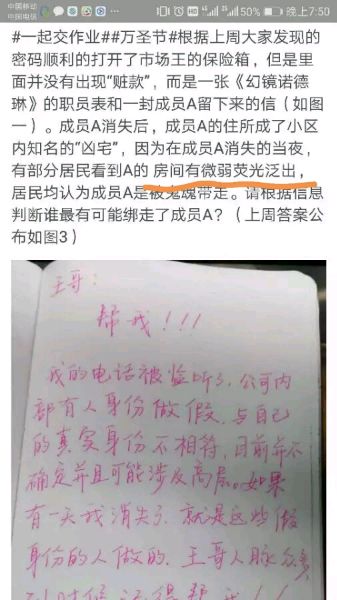 中国移动
中国电信
HD 4G 4G 50% 晚上7:50
#一起交作业##万圣节#根据上周大家发现的
密码顺利的打开了市场王的保险箱，但是里
面并没有出现“赃款”，而是一张《幻镜诺德
琳》的职员表和一封成员A留下来的信（如图
一）。成员A消失后，成员A的住所成了小区
内知名的“凶宅”，因为在成员A消失的当夜，
有部分居民看到A的 房间有微弱荧光泛出，
居民均认为成员A是被鬼魂带走。请根据信息
判断谁最有可能绑走了成员A？（上周答案公
布如图3）
王哥：
帮我！！！
我的电话被监听了，公司内
部有人身份做假，与自己
的真实身份不相符，目前并不
确定并且可能涉及高层。如果
有一天我消失了，就是这些假
身份的人做的，王哥人脉众多